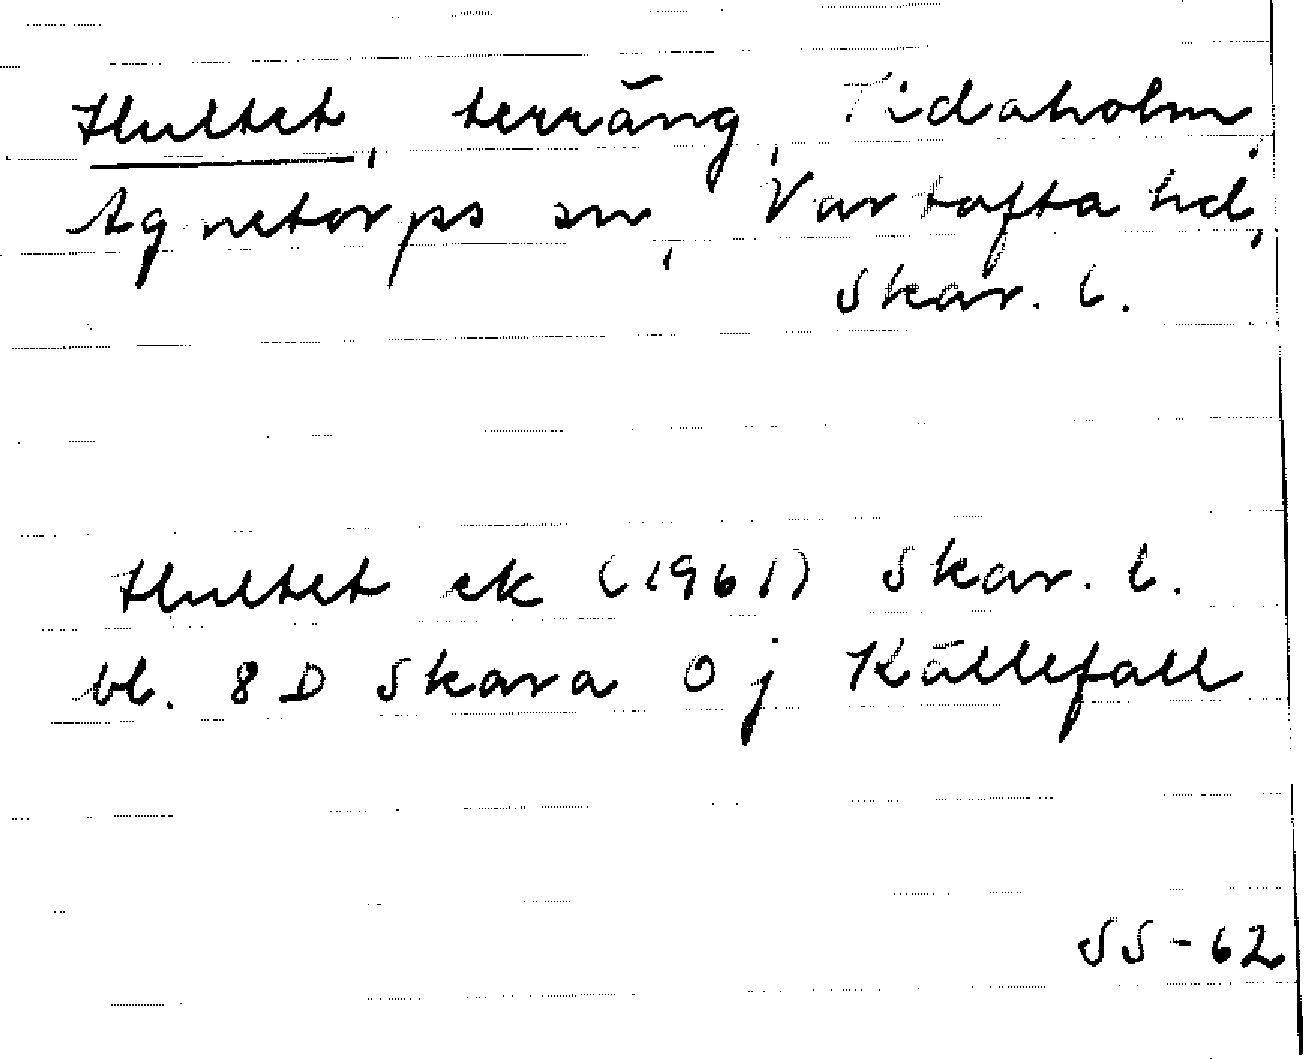 Hultet, terräng, Tidaholm,
Agnetorps sn, Vartofta hd,
Skar. l.
Hultet ek (1961) Skar. l.
bl. 8 D Skara 0 j Källefall
SS-62